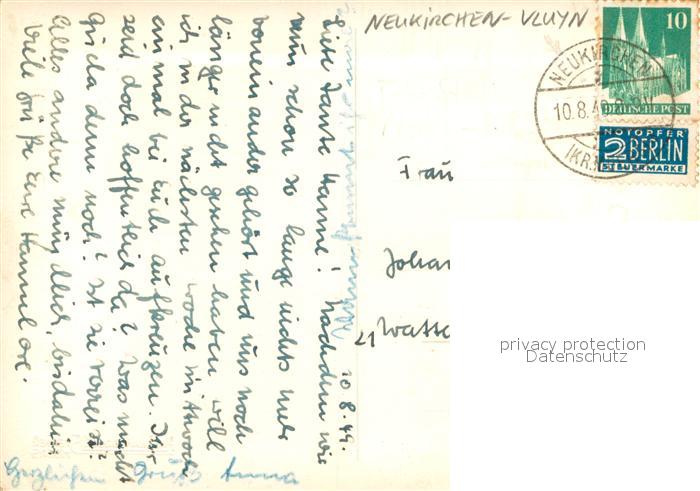 NEUKIRCHEN-VLUYN
10
DEUTSCHE POST
NEUKIRCHEN
10.8.4
(KR.
NOTOPFER
2 BERLIN
STEUERMARKE
10.8.49.
Liebe Tante Hanne! Nachdem wir
nun schon so lange nichts mehr
voneinander gehört und uns noch
länger nicht gesehen haben, will
ich in der nächsten Woche Mittwoch
einmal bei Euch aufkreuzen. Ihr
seid doch hoffentlich da? Was macht
Gisda denn noch? Ist sie verreist?
Alles andere mündlich, bis dahin
viele Grüße Eure Hannelore.
Herzlichen Gruß Anna
Frau
Johan
21 Watte
privacy protection
Datenschutz